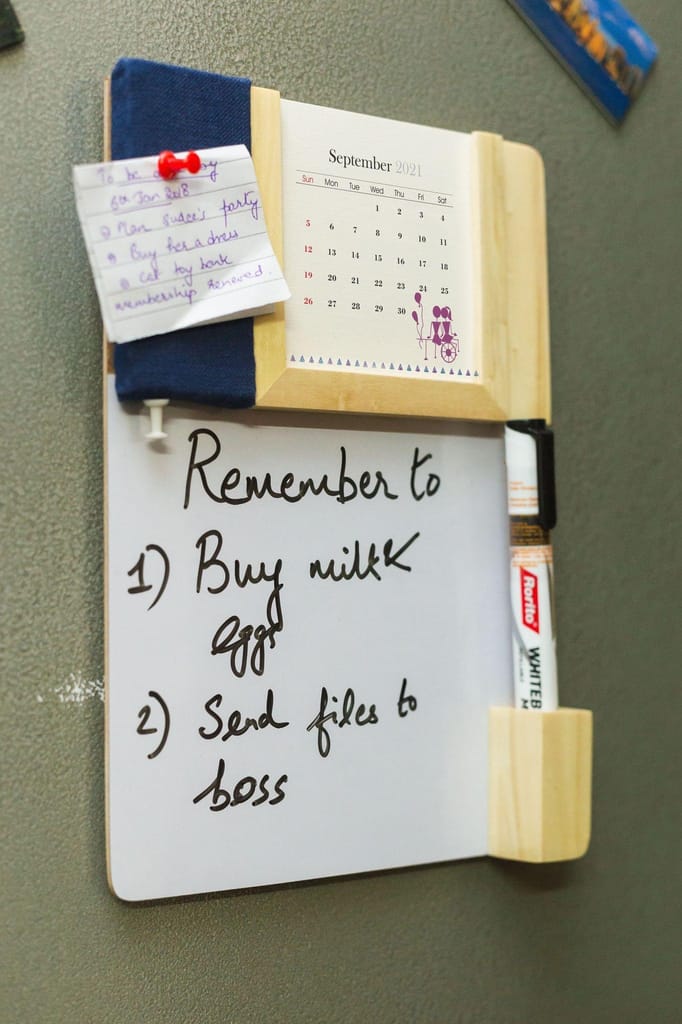 September 2021
Sun Mon Tue Wed Thu Fri Sat
1 2 3 4
5 6 7 8 9 10 11
12 13 14 15 16 17 18
19 20 21 22 23 24 25
26 27 28 29 30
To be by
6th Jan 2018
party
Buy her a dress
Get toy bank
membership renewed.
Remember to
1) Buy milk
eggs
2) Send files to
boss
Rorito
WHITEB